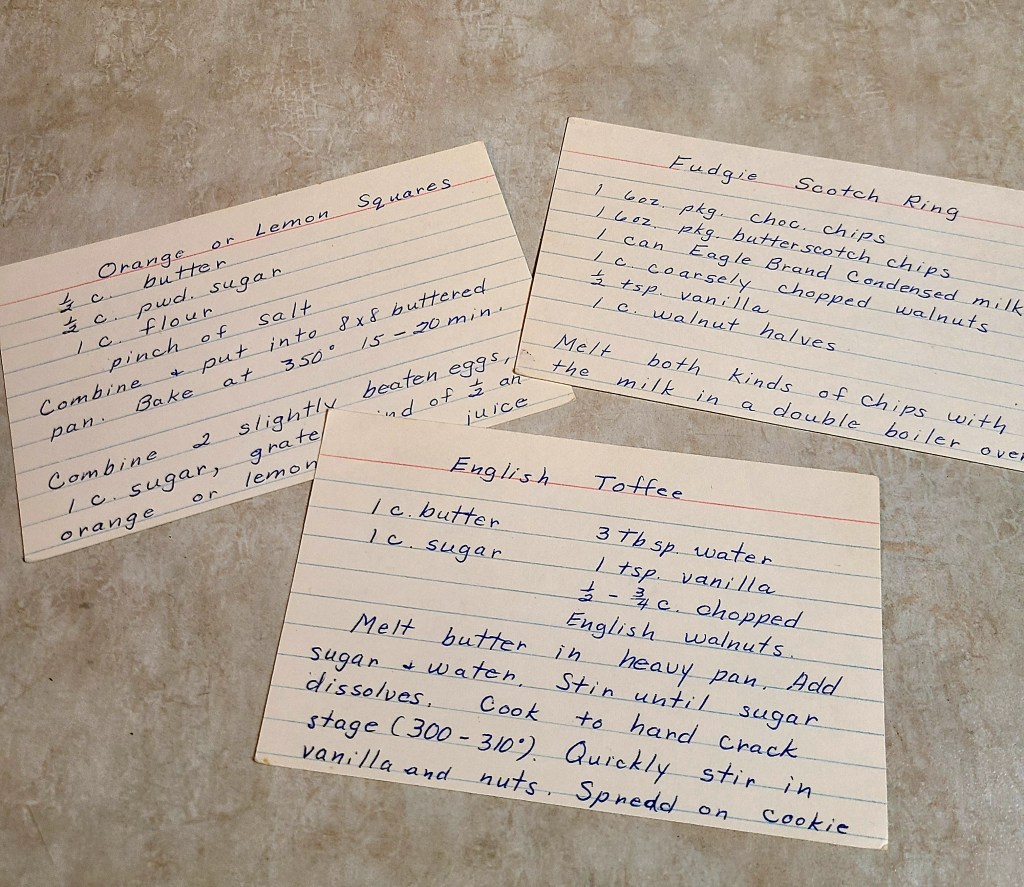 Orange or Lemon Squares
½ c. butter
½ c. pwd. sugar
1 c. flour
pinch of salt
Combine & put into 8x8 buttered
pan. Bake at 350° 15 - 20 min.
Combine 2 slightly beaten eggs,
1 c. sugar, grate nd of ½ an
orange or lemon juice
Fudgie Scotch Ring
1 6oz. pkg. choc. chips
1 6oz. pkg. butterscotch chips
1 can Eagle Brand Condensed milk
1 c. coarsely chopped walnuts
½ tsp. vanilla
1 c. walnut halves
Melt both kinds of chips with
the milk in a double boiler over
English Toffee
1 c. butter 3 Tbsp. water
1 c. sugar 1 tsp. vanilla
½ - ¾ c. chopped
English walnuts.
Melt butter in heavy pan. Add
sugar & water. Stir until sugar
dissolves. Cook to hard crack
stage (300 - 310°). Quickly stir in
vanilla and nuts. Spredd on cookie